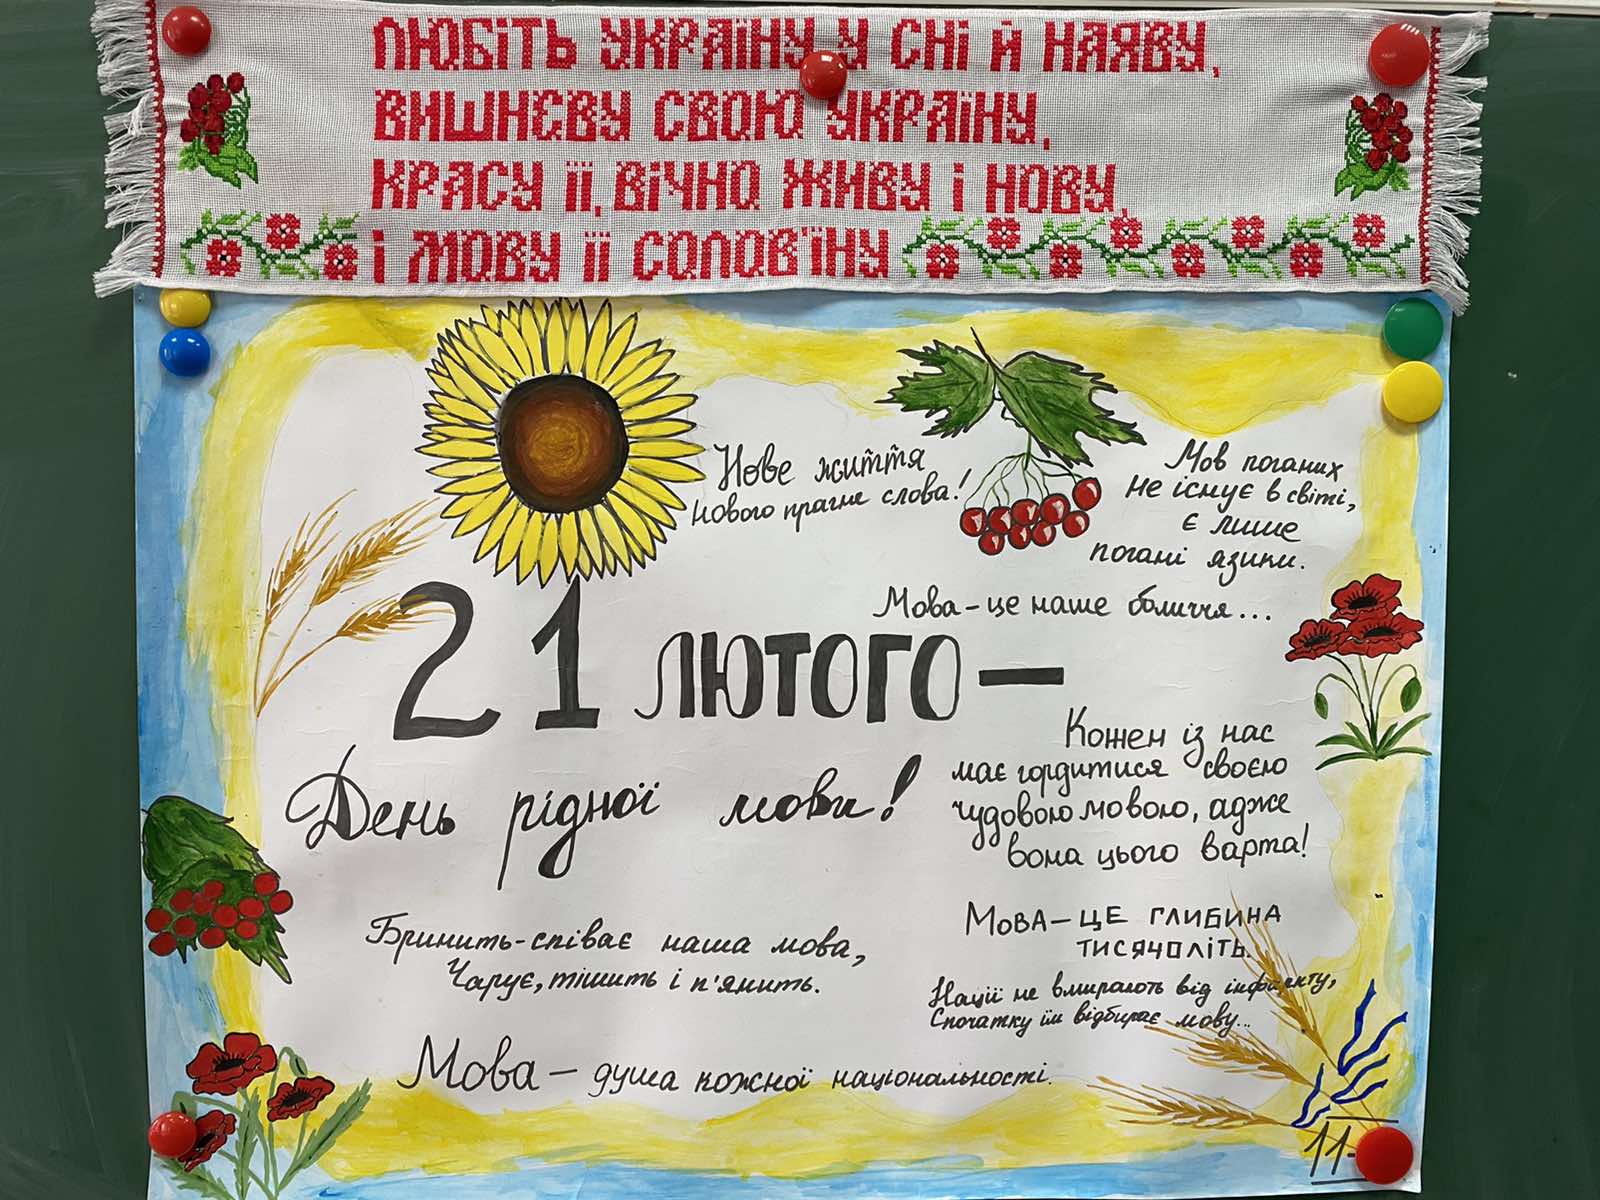 ЛЮБІТЬ УКРАЇНУ У СНІ Й НАЯВУ,
ВИШНЄВУ СВОЮ УКРАЇНУ,
КРАСУ ЇЇ, ВІЧНО ЖИВУ І НОВУ,
І МОВУ ЇЇ СОЛОВ'ЇНУ
Нове життя
нового прагне слова!
Мов поганих
не існує в світі,
є лише
погані язики.
Мова – це наше обличчя...
21 ЛЮТОГО —
День рідної мови!
Кожен із нас
має гордитися своєю
чудовою мовою, адже
вона цього варта!
Бринить-співає наша мова,
Чарує, тішить і п'янить.
Мова – ЦЕ ГЛИБИНА
ТИСЯЧОЛІТЬ.
Нації не вмирають від інфаркту,
Спочатку їм відбирає мову...
Мова – душа кожної національності.
11-